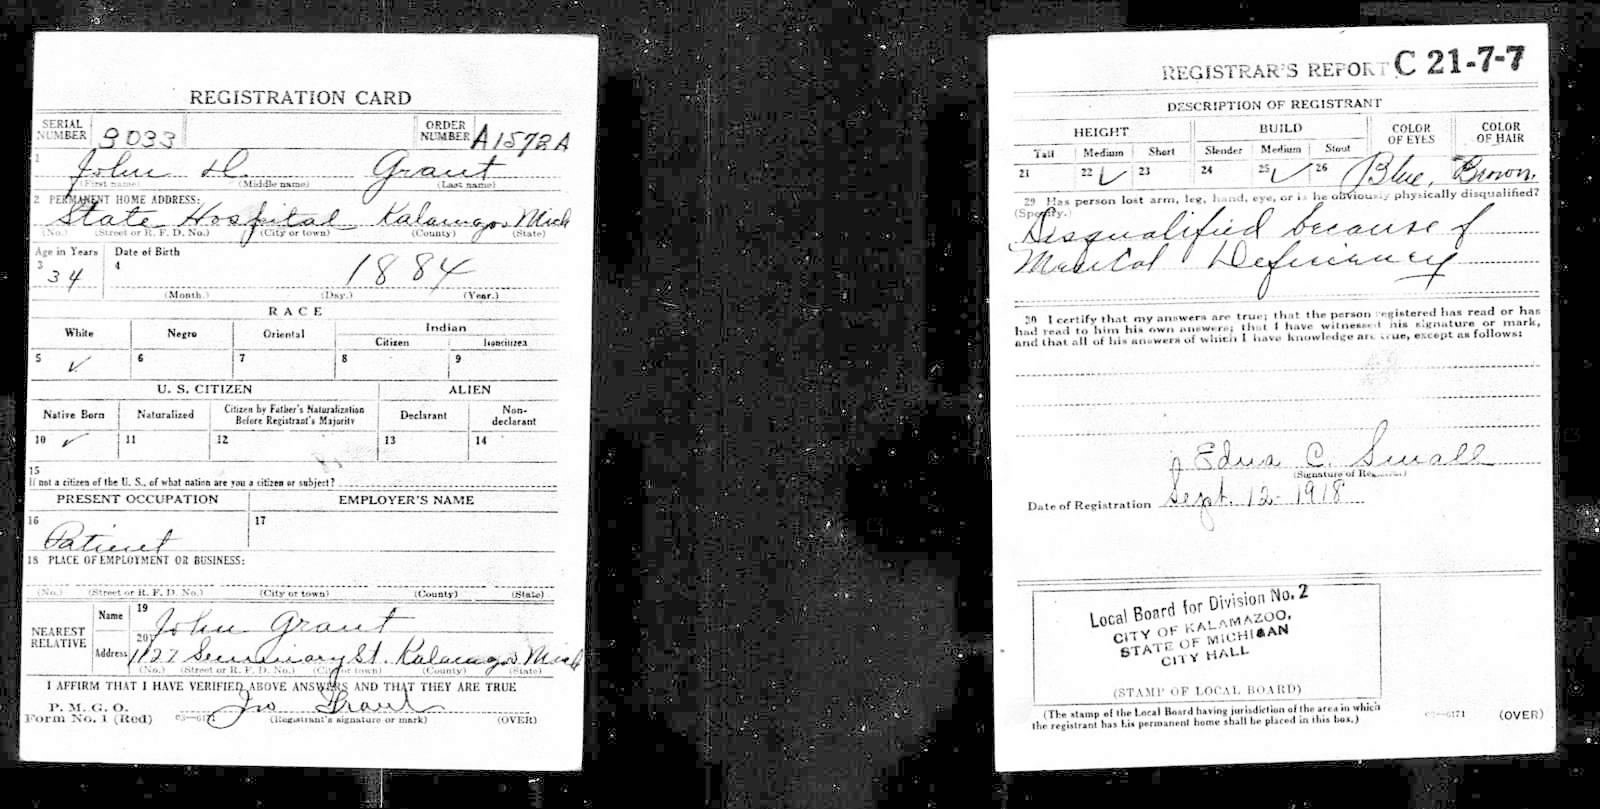 REGISTRATION CARD
SERIAL NUMBER 3033 ORDER NUMBER A1572A
1 John H. Grant
(First name) (Middle name) (Last name)
2 PERMANENT HOME ADDRESS:
State Hospital Kalamazoo Mich
(No.) (Street or R. F. D. No.) (City or town) (County) (State)
Age in Years Date of Birth
3 34 4 1884
(Month.) (Day.) (Year.)
RACE
White Negro Oriental Indian
Citizen Noncitizen
5 ✓ 6 7 8 9
U. S. CITIZEN ALIEN
Native Born Naturalized Citizen by Father's Naturalization Before Registrant's Majority Declarant Non-declarant
10 ✓ 11 12 13 14
15
If not a citizen of the U. S., of what nation are you a citizen or subject?
PRESENT OCCUPATION EMPLOYER'S NAME
16 Patient 17
18 PLACE OF EMPLOYMENT OR BUSINESS:
(No.) (Street or R. F. D. No.) (City or town) (County) (State)
NEAREST RELATIVE Name 19 John Grant
Address 20 1127 Seminary St. Kalamazoo Mich
(No.) (Street or R. F. D. No.) (City or town) (County) (State)
I AFFIRM THAT I HAVE VERIFIED ABOVE ANSWERS AND THAT THEY ARE TRUE
P. M. G. O.
Form No. 1 (Red) 03—6171 Jno Grant
(Registrant's signature or mark) (OVER)
REGISTRAR'S REPORT C 21-7-7
DESCRIPTION OF REGISTRANT
HEIGHT BUILD COLOR OF EYES COLOR OF HAIR
Tall Medium Short Slender Medium Stout
21 22 ✓ 23 24 25 ✓ 26 Blue, Brown.
29 Has person lost arm, leg, hand, eye, or is he obviously physically disqualified?
(Specify.)
Disqualified because of
Mental Deficiency
30 I certify that my answers are true; that the person registered has read or has
had read to him his own answers; that I have witnessed his signature or mark,
and that all of his answers of which I have knowledge are true, except as follows:
Edna C. Small
(Signature of Registrar)
Date of Registration Sept. 12 - 1918
Local Board for Division No. 2
CITY OF KALAMAZOO,
STATE OF MICHIGAN
CITY HALL
(STAMP OF LOCAL BOARD)
(The stamp of the Local Board having jurisdiction of the area in which
the registrant has his permanent home shall be placed in this box.)
03—6171 (OVER)